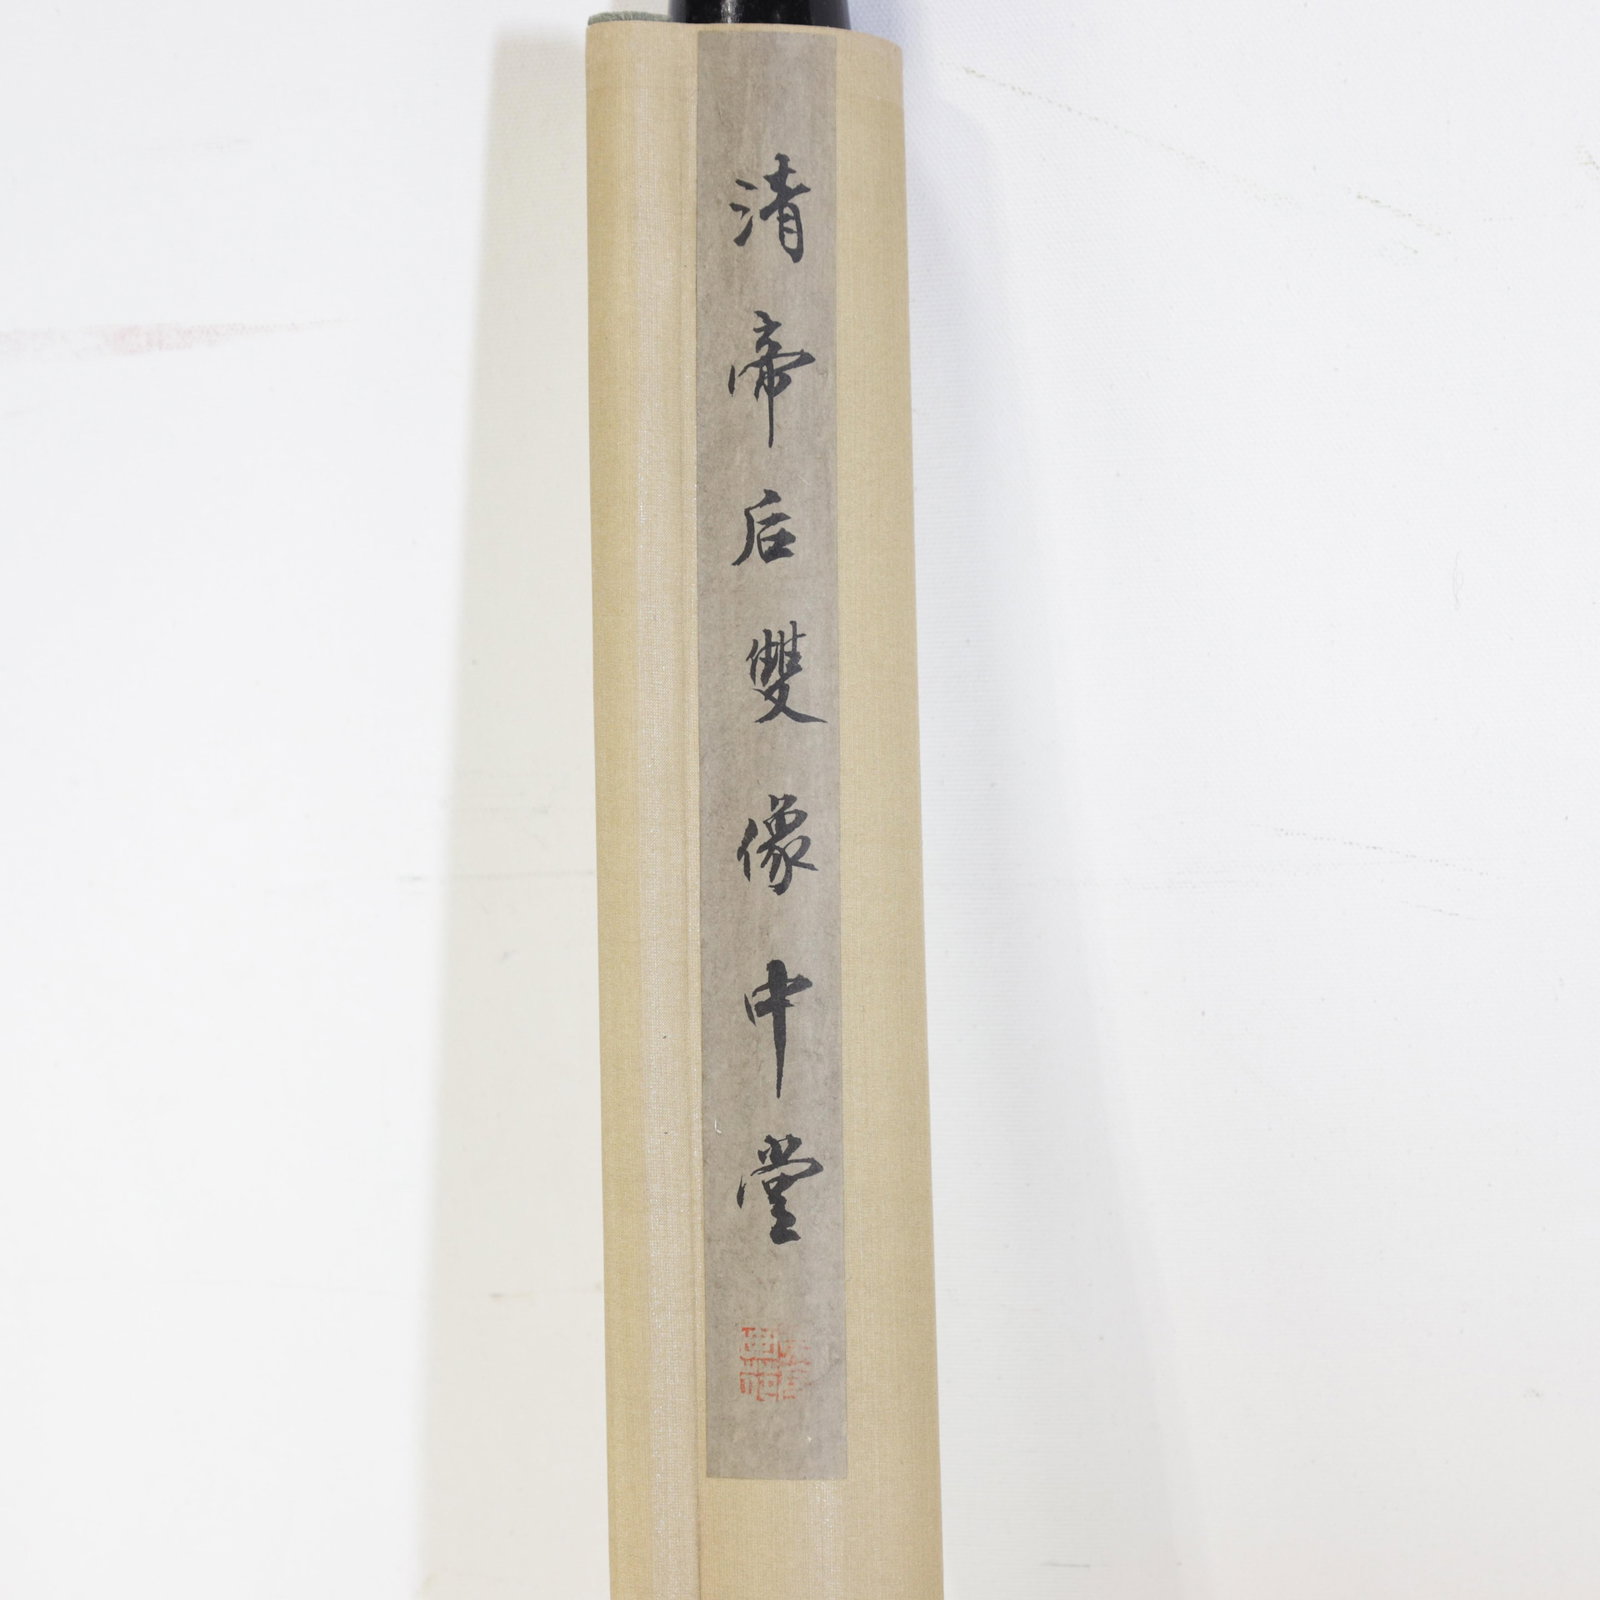 清帝后雙像中堂